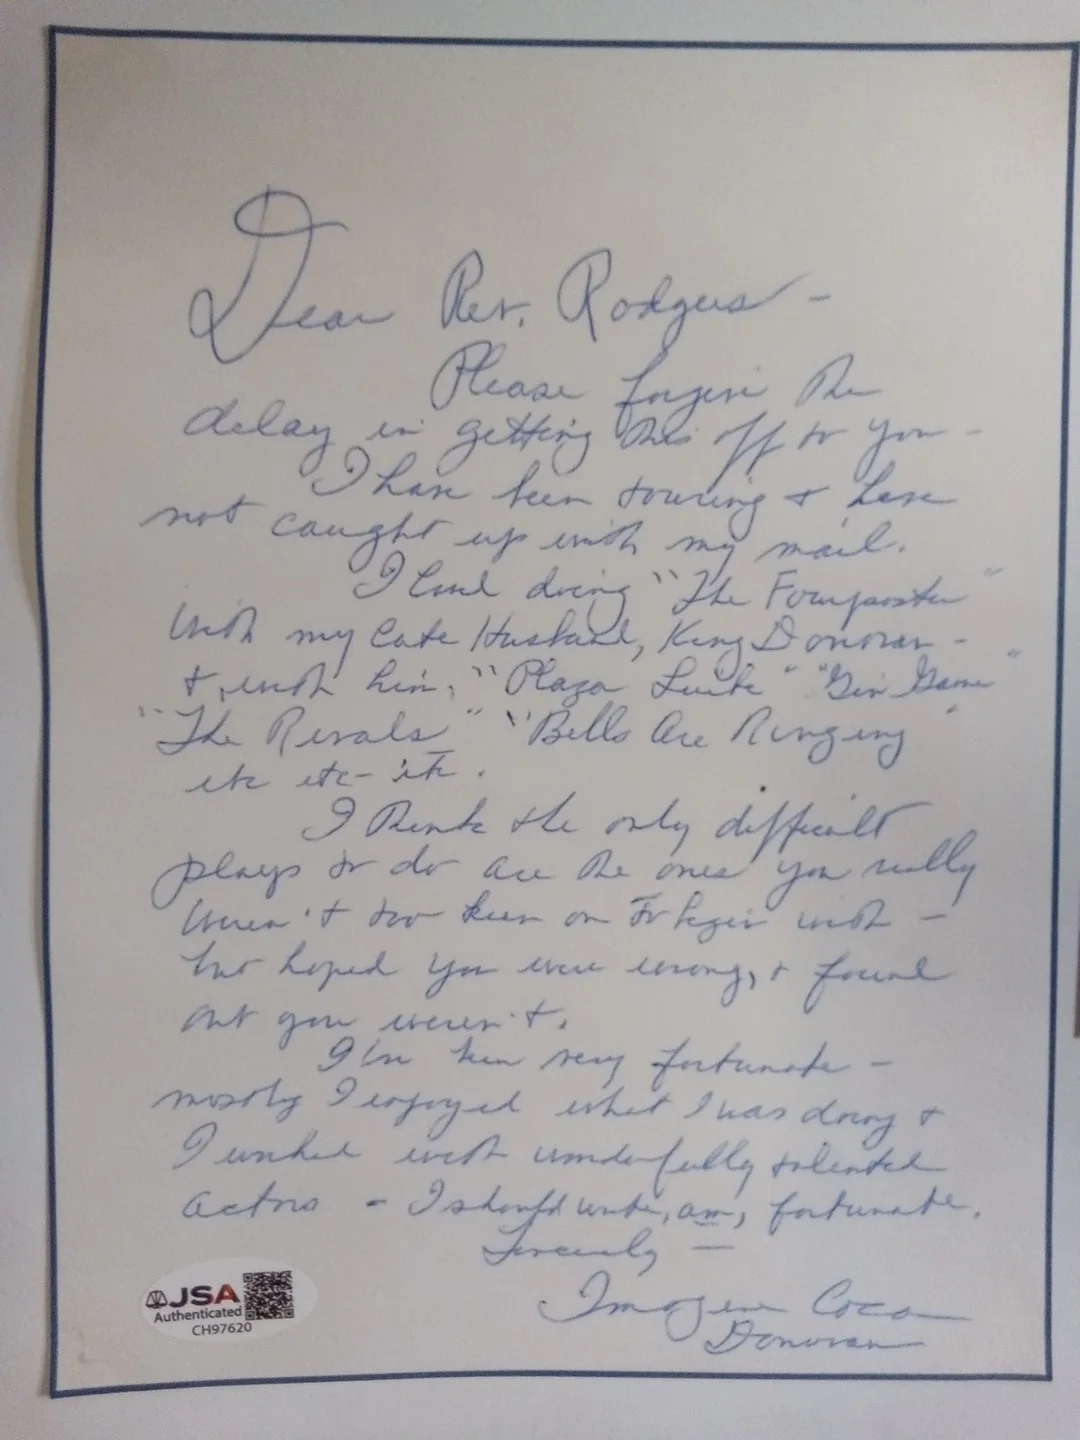 Dear Rev. Rodgers –
Please forgive the
delay in getting this off to you –
I have been touring & have
not caught up with my mail.
I loved doing "The Fourposter"
with my late Husband, King Donovan –
& with him, "Plaza Suite" "Gin Game"
"The Rivals" "Bells Are Ringing"
etc etc – etc.
I think the only difficult
plays to do are the ones you really
weren't too keen on to begin with –
but hoped you were wrong, & found
out you weren't.
I've been very fortunate –
mostly I enjoyed what I was doing &
I worked with wonderfully talented
actors – I should write, am, fortunate.
Sincerely –
Imogene Coca
Donovan
JSA
Authenticated
CH97620